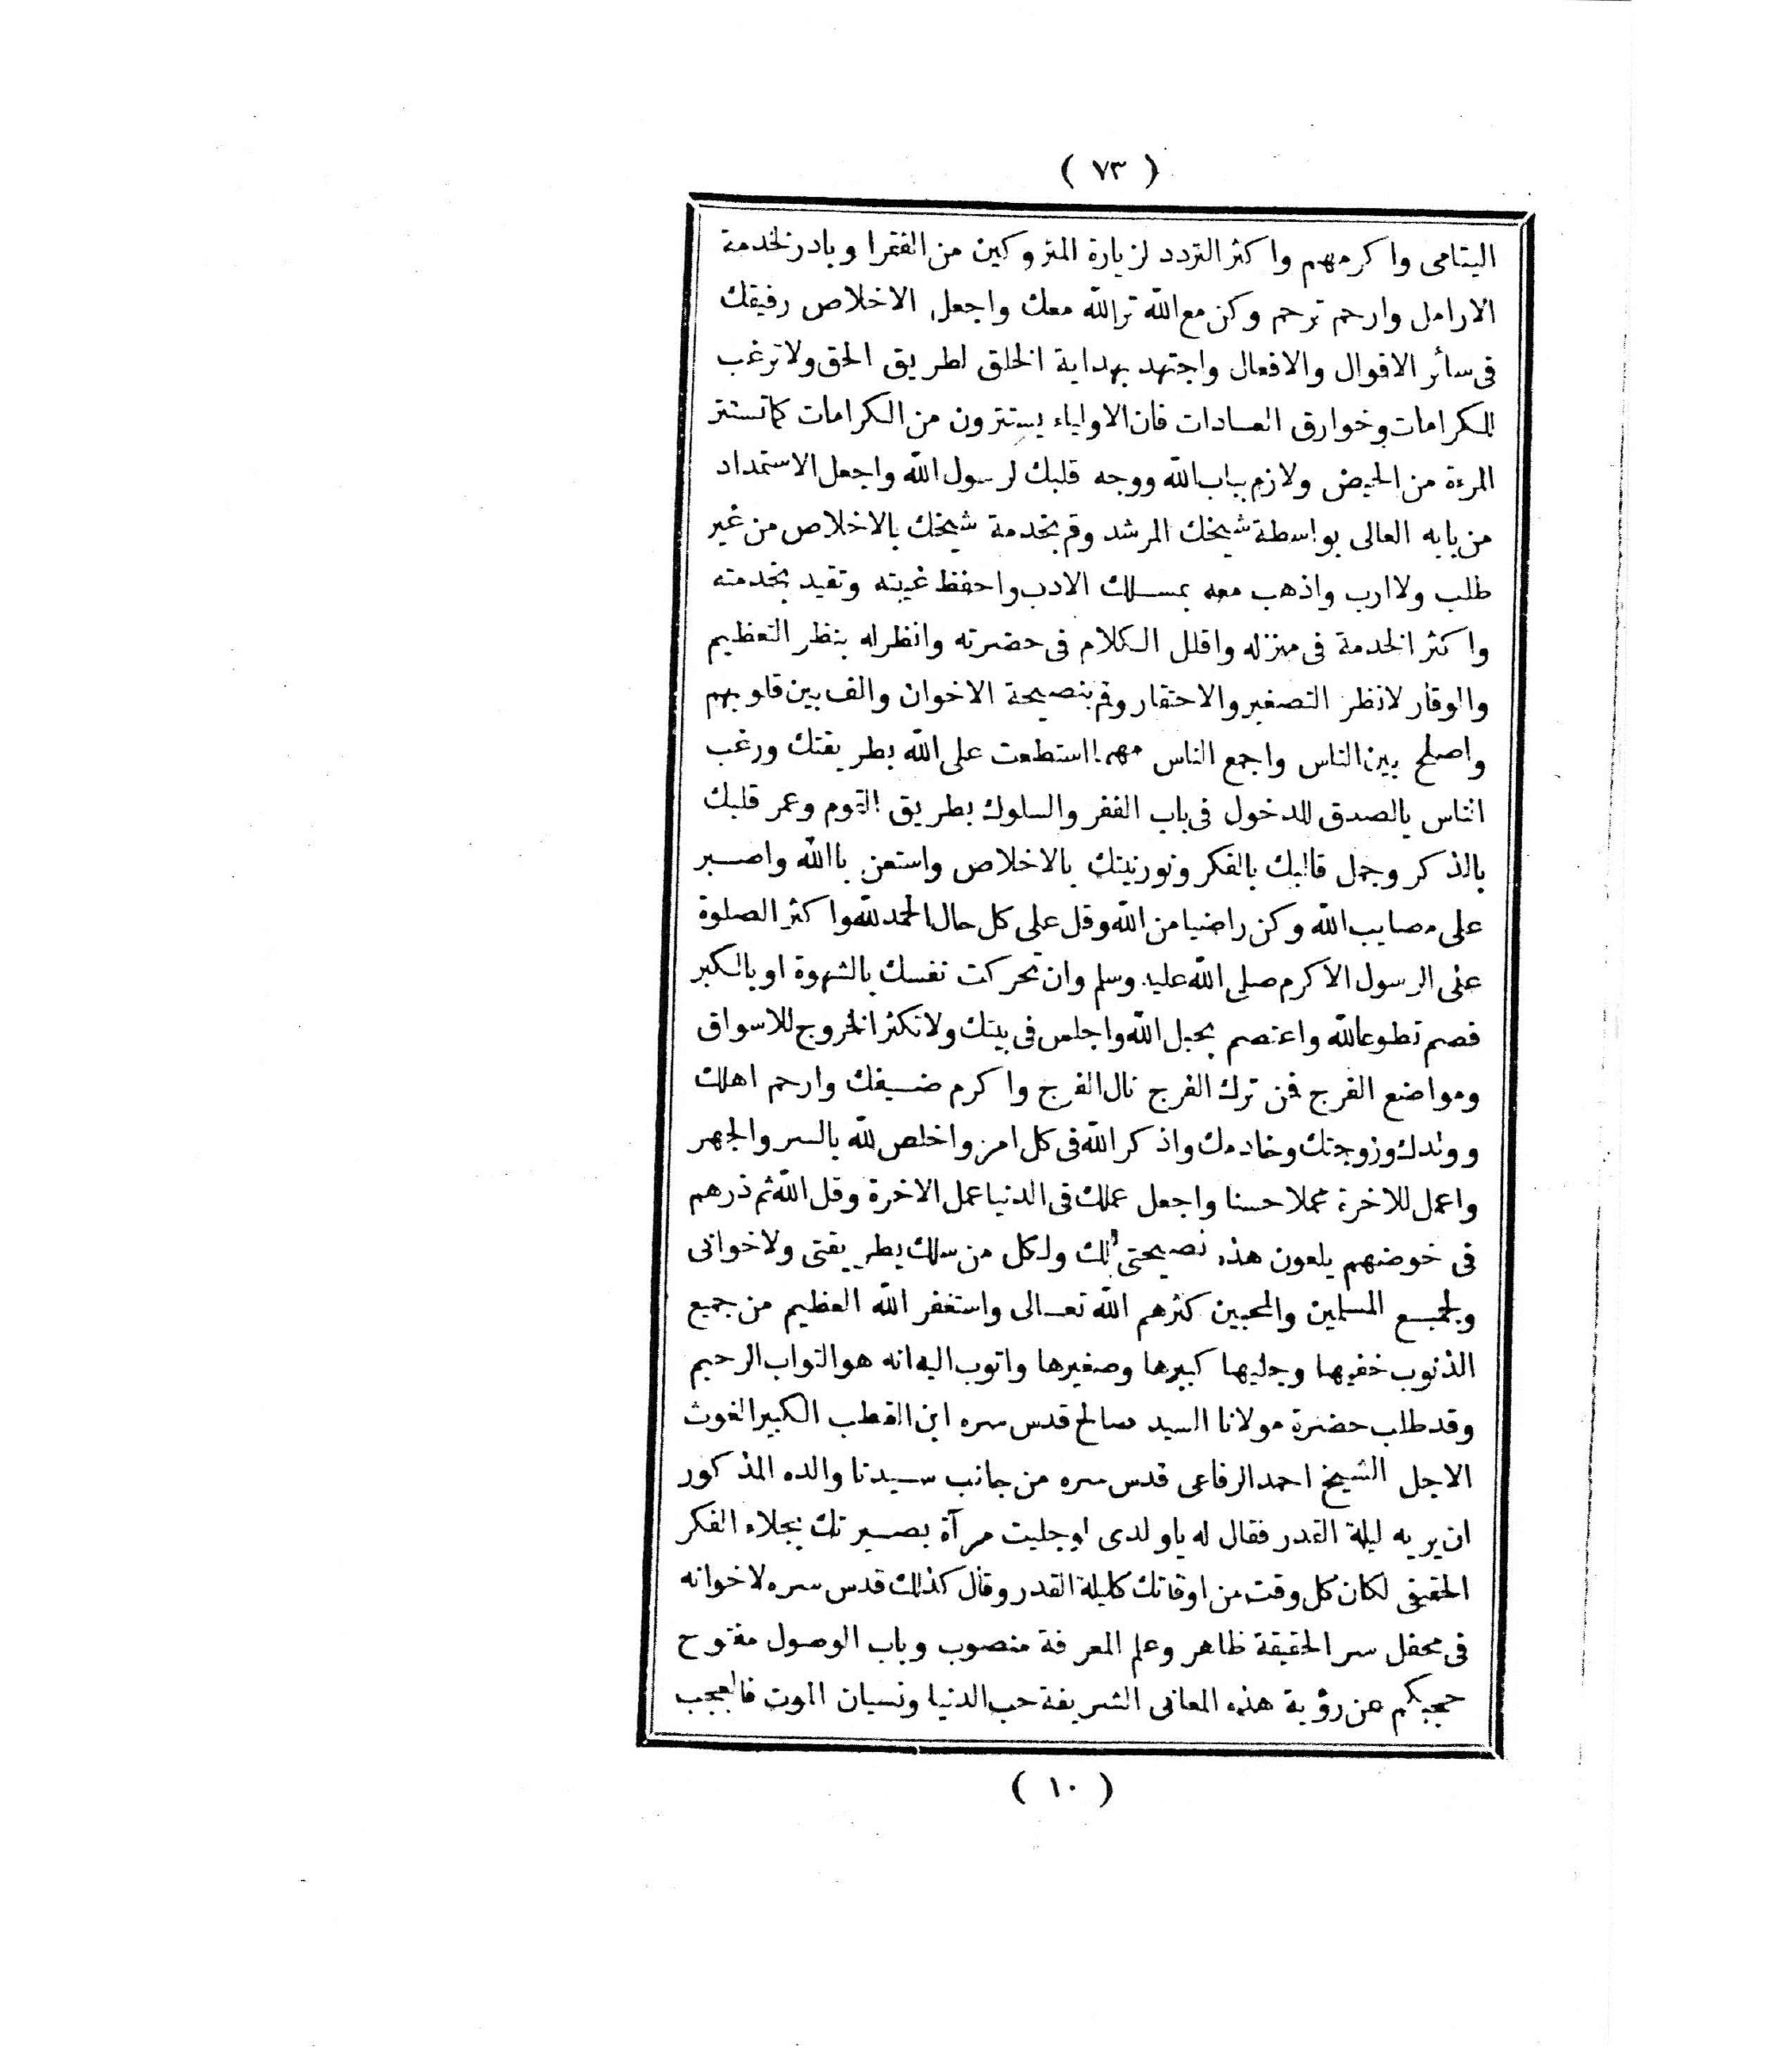 ( ٧٣ )
اليتامى واكرمهم واكثر التردد لزيارة المتروكين من الفقرا وبادر لخدمة
الارامل وارحم ترحم وكن مع الله تر الله معك واجعل الاخلاص رفيقك
فى سأئر الاقوال والافعال واجتهد بهداية الخلق لطريق الحق ولا ترغب
للكرامات وخوارق العادات فان الاولياء يستترون من الكرامات كما تستتر
المرءة من الحيض ولازم باب الله ووجه قلبك لرسول الله واجعل الاستمداد
من بابه العالى بواسطة شيخك المرشد وقم بخدمة شيخك بالاخلاص من غير
طلب ولا ارب واذهب معه بمسلك الادب واحفظ غيبته وتقيد بخدمته
واكثر الخدمة فى منزله واقلل الكلام فى حضرته وانظر له بنظر التعظيم
والوقار لا نظر التصغير والاحتقار وقم بنصيحة الاخوان والف بين قلوبهم
واصلح بين الناس واجمع الناس مهما استطعت على الله بطريقتك ورغب
الناس بالصدق للدخول فى باب الفقر والسلوك بطريق القوم وعمر قلبك
بالذكر وجمل قالبك بالفكر ونور نيتك بالاخلاص واستعن باالله واصبر
على مصايب الله وكن راضيا من الله وقل على كل حال الحمد لله واكثر الصلوة
على الرسول الاكرم صلى الله عليه وسلم وان تحركت نفسك بالشهوة او بالكبر
فصم تطوعا لله واعتصم بحبل الله واجلس فى بيتك ولا تكثر الخروج للاسواق
ومواضع الفرج فمن ترك الفرج نال الفرج واكرم ضيفك وارحم اهلك
وولدك وزوجتك وخادمك واذكر الله فى كل امر واخلص لله بالسر والجهر
واعمل للاخرة عملا حسنا واجعل عملك فى الدنيا عمل الاخرة وقل الله ثم ذرهم
فى خوضهم يلعون هذه نصيحتى لك ولكل من سلك بطريقتى ولاخوانى
ولجميع المسلمين والمحبين كثرهم الله تعالى واستغفر الله العظيم من جميع
الذنوب خفيها وجليها كبيرها وصغيرها واتوب اليه انه هو التواب الرحيم
وقد طلب حضرة مولانا السيد صالح قدس سره ابن القطب الكبير الغوث
الاجل الشيخ احمد الرفاعى قدس سره من جانب سيدنا والده المذكور
ان يريه ليلة القدر فقال له ياولدى لو جليت مرآة بصيرتك بجلاء الفكر
الحقيقى لكان كل وقت من اوقاتك كليلة القدر وقال كذلك قدس سره لاخوانه
فى محفل سر الحقيقة ظاهر وعلم المعرفة منصوب وباب الوصول مفتوح
حجبكم عن رؤية هذه المعانى الشريفة حب الدنيا ونسيان الموت فالعجب
( ١٠ )